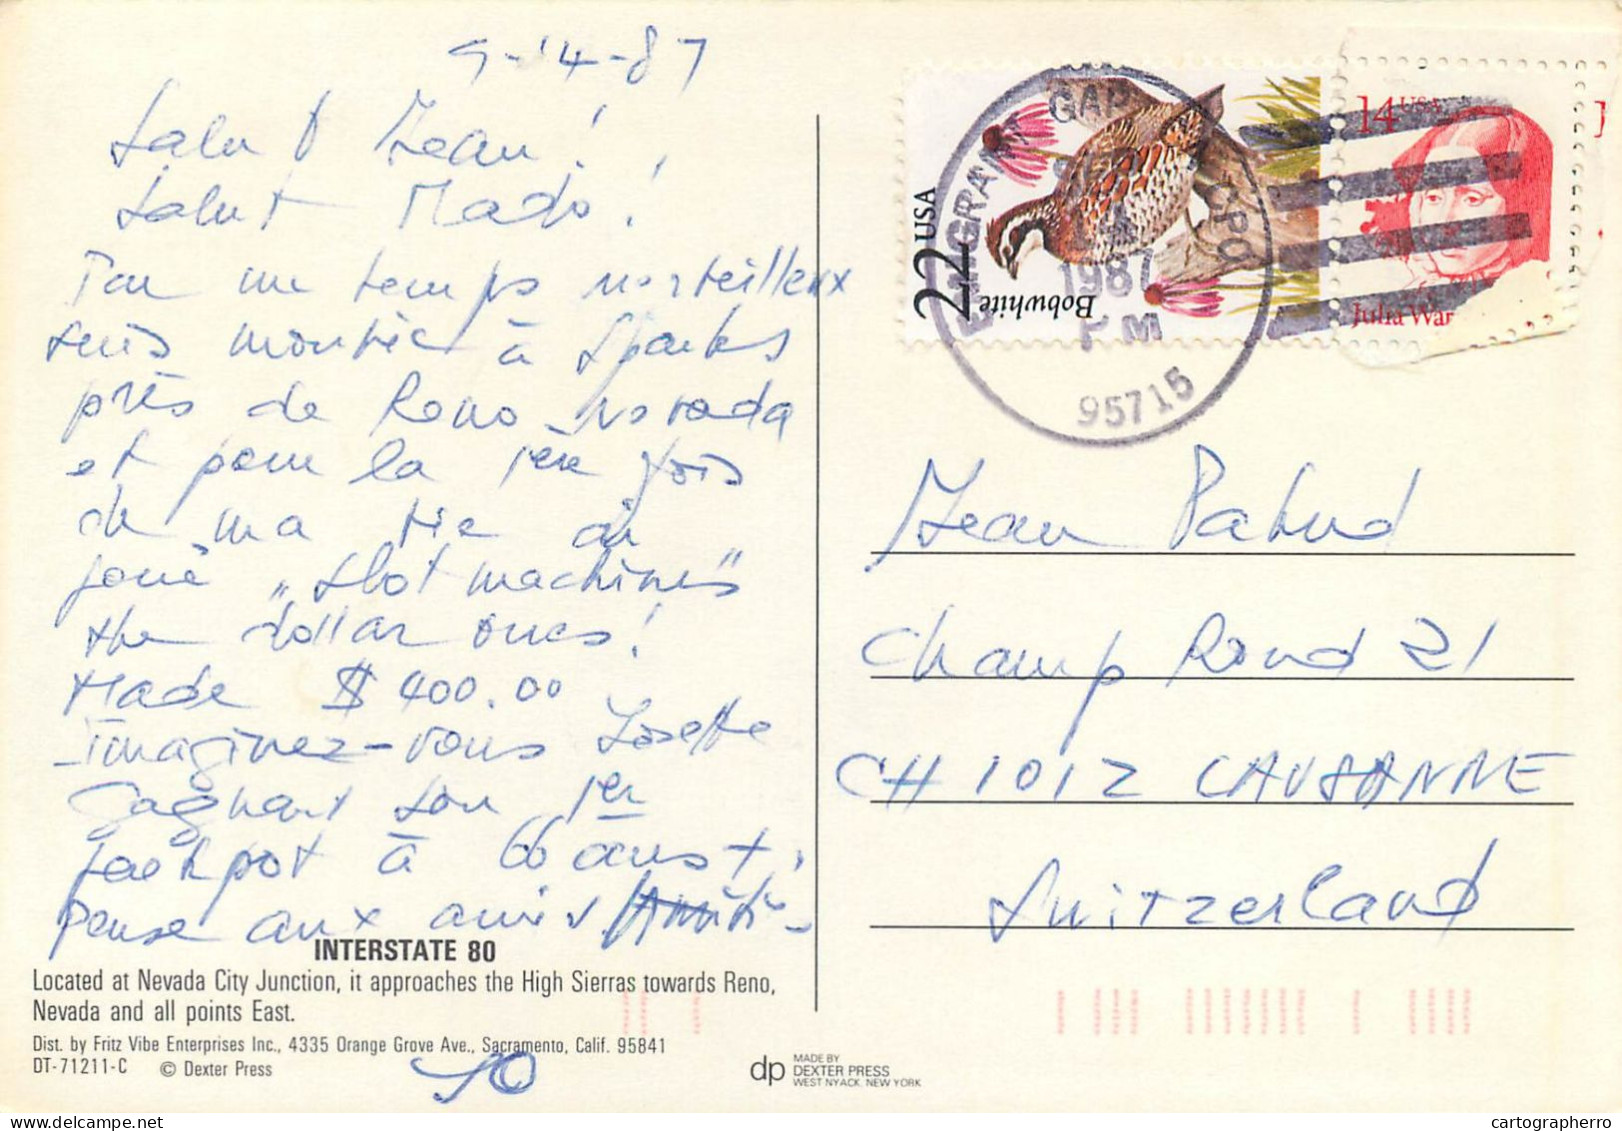 9-14-87
Salut Jean!
Salut Mado!
Par un temps merveilleux
suis montée à Sparks
près de Reno Nevada
et pour la 1ère fois
de ma vie ai
joué "slot machines"
the dollar ones!
Made $ 400.00
imaginez-vous Josette
gagnant son 1er
jackpot à 60 ans +,
Pense aux amis
INTERSTATE 80
Located at Nevada City Junction, it approaches the High Sierras towards Reno,
Nevada and all points East.
Dist. by Fritz Vibe Enterprises Inc., 4335 Orange Grove Ave., Sacramento, Calif. 95841
DT-71211-C © Dexter Press
JO
dp MADE BY
DEXTER PRESS
WEST NYACK, NEW YORK
22 USA
Bobwhite
14 USA
Julia War
EMIGRANT GAP CPO
1987
PM
95715
Jean Pahud
Champ Rond 21
CH 1012 LAUSANNE
Switzerland
cartographerro